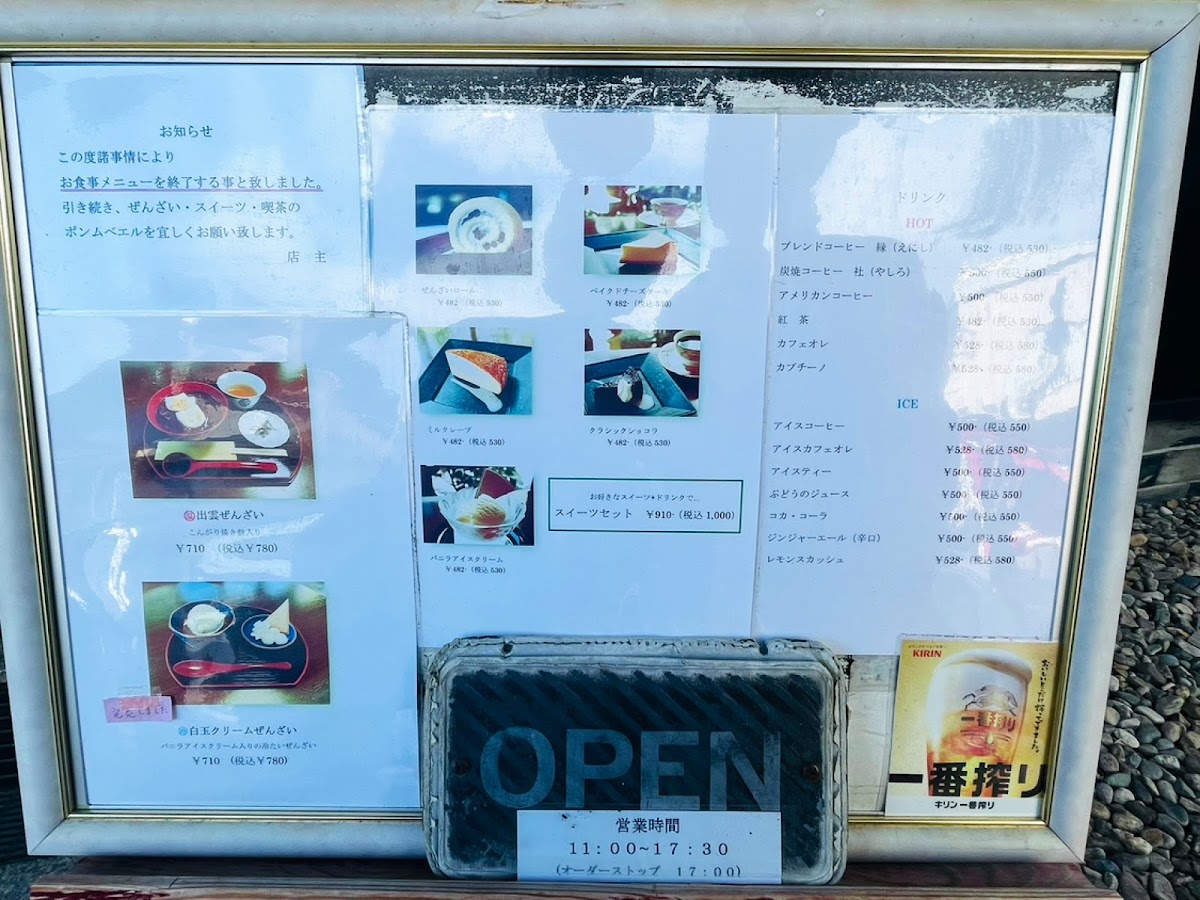 お知らせ
この度諸事情により
お食事メニューを終了する事と致しました。
引き続き、ぜんざい・スイーツ・喫茶の
ボンムベエルを宜しくお願い致します。
店 主
出雲ぜんざい
こんがり焼き餅入り
￥710 （税込￥780）
完売しました
冷 白玉クリームぜんざい
バニラアイスクリーム入りの冷たいぜんざい
￥710 （税込￥780）
ぜんざいロール
￥482-（税込 530）
ベイクドチーズケーキ
￥482-（税込 530）
ミルクレープ
￥482-（税込 530）
クラシックショコラ
￥482-（税込 530）
バニラアイスクリーム
￥482-（税込 530）
お好きなスイーツ+ドリンクで...
スイーツセット ￥910-（税込 1,000）
ドリンク
HOT
ブレンドコーヒー 縁（えにし） ￥482-（税込 530）
炭焼コーヒー 社（やしろ） ￥500-（税込 550）
アメリカンコーヒー ￥500-（税込 550）
紅 茶 ￥482-（税込 530）
カフェオレ ￥528-（税込 580）
カプチーノ ￥528-（税込 580）
ICE
アイスコーヒー ￥500-（税込 550）
アイスカフェオレ ￥528-（税込 580）
アイスティー ￥500-（税込 550）
ぶどうのジュース ￥500-（税込 550）
コカ・コーラ ￥500-（税込 550）
ジンジャーエール（辛口） ￥500-（税込 550）
レモンスカッシュ ￥528-（税込 580）
OPEN
営業時間
11：00~17：30
（オーダーストップ 17：00）
KIRIN
一番搾り
一番搾り
キリン一番搾り